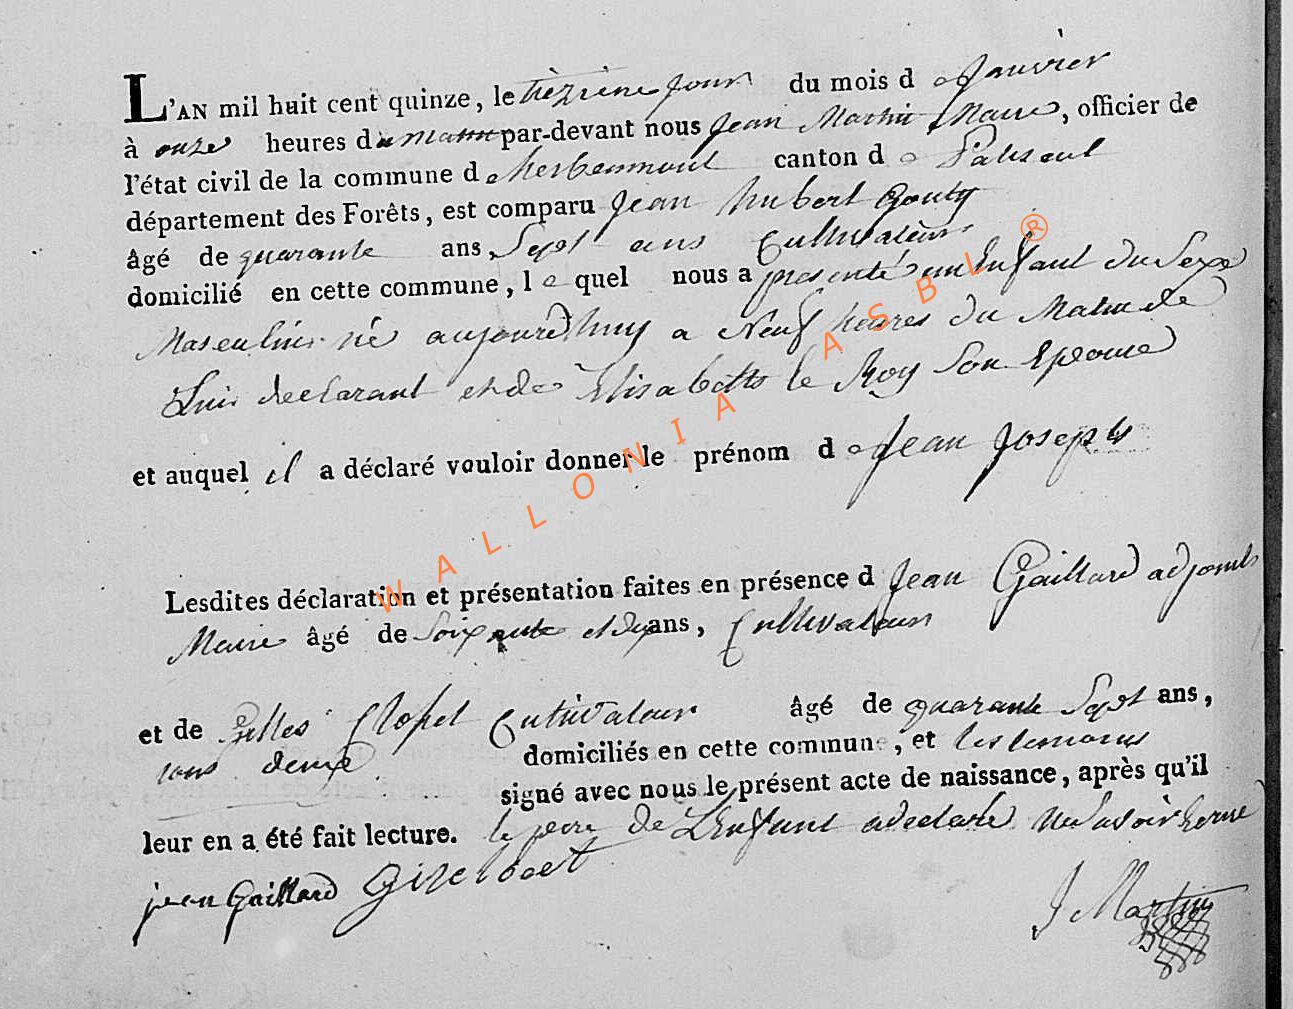 L'AN mil huit cent quinze, le trèzième jour du mois de Janvier
à onze heures du matin par-devant nous Jean Martin Maire, officier de
l'état civil de la commune d herbeumont canton de Paliseul
département des Forêts, est comparu Jean hubert Gouty
âgé de quarante ans Sept ans Cultivateur
domicilié en cette commune, lequel nous a présenté un Enfant du Sexe
Masculin né aujourdhuy a Neuf heures du Matin de
Luis declarant et de Elisabette le Roy Son Epouse
et auquel il a déclaré vouloir donner le prénom de Jean Joseph
Lesdites déclaration et présentation faites en présence d Jean Gaillard adjoint
Maire âgé de Soixante et dix ans, Cultivateur
et de Gilles Clopet Cutivateur âgé de quarante Sept ans,
tous deux domiciliés en cette commune, et les temoins
signé avec nous le présent acte de naissance, après qu'il
leur en a été fait lecture. le pere de L'Enfant a declaré
jean Gaillard
J Martin
WALLONIA ASBL ®